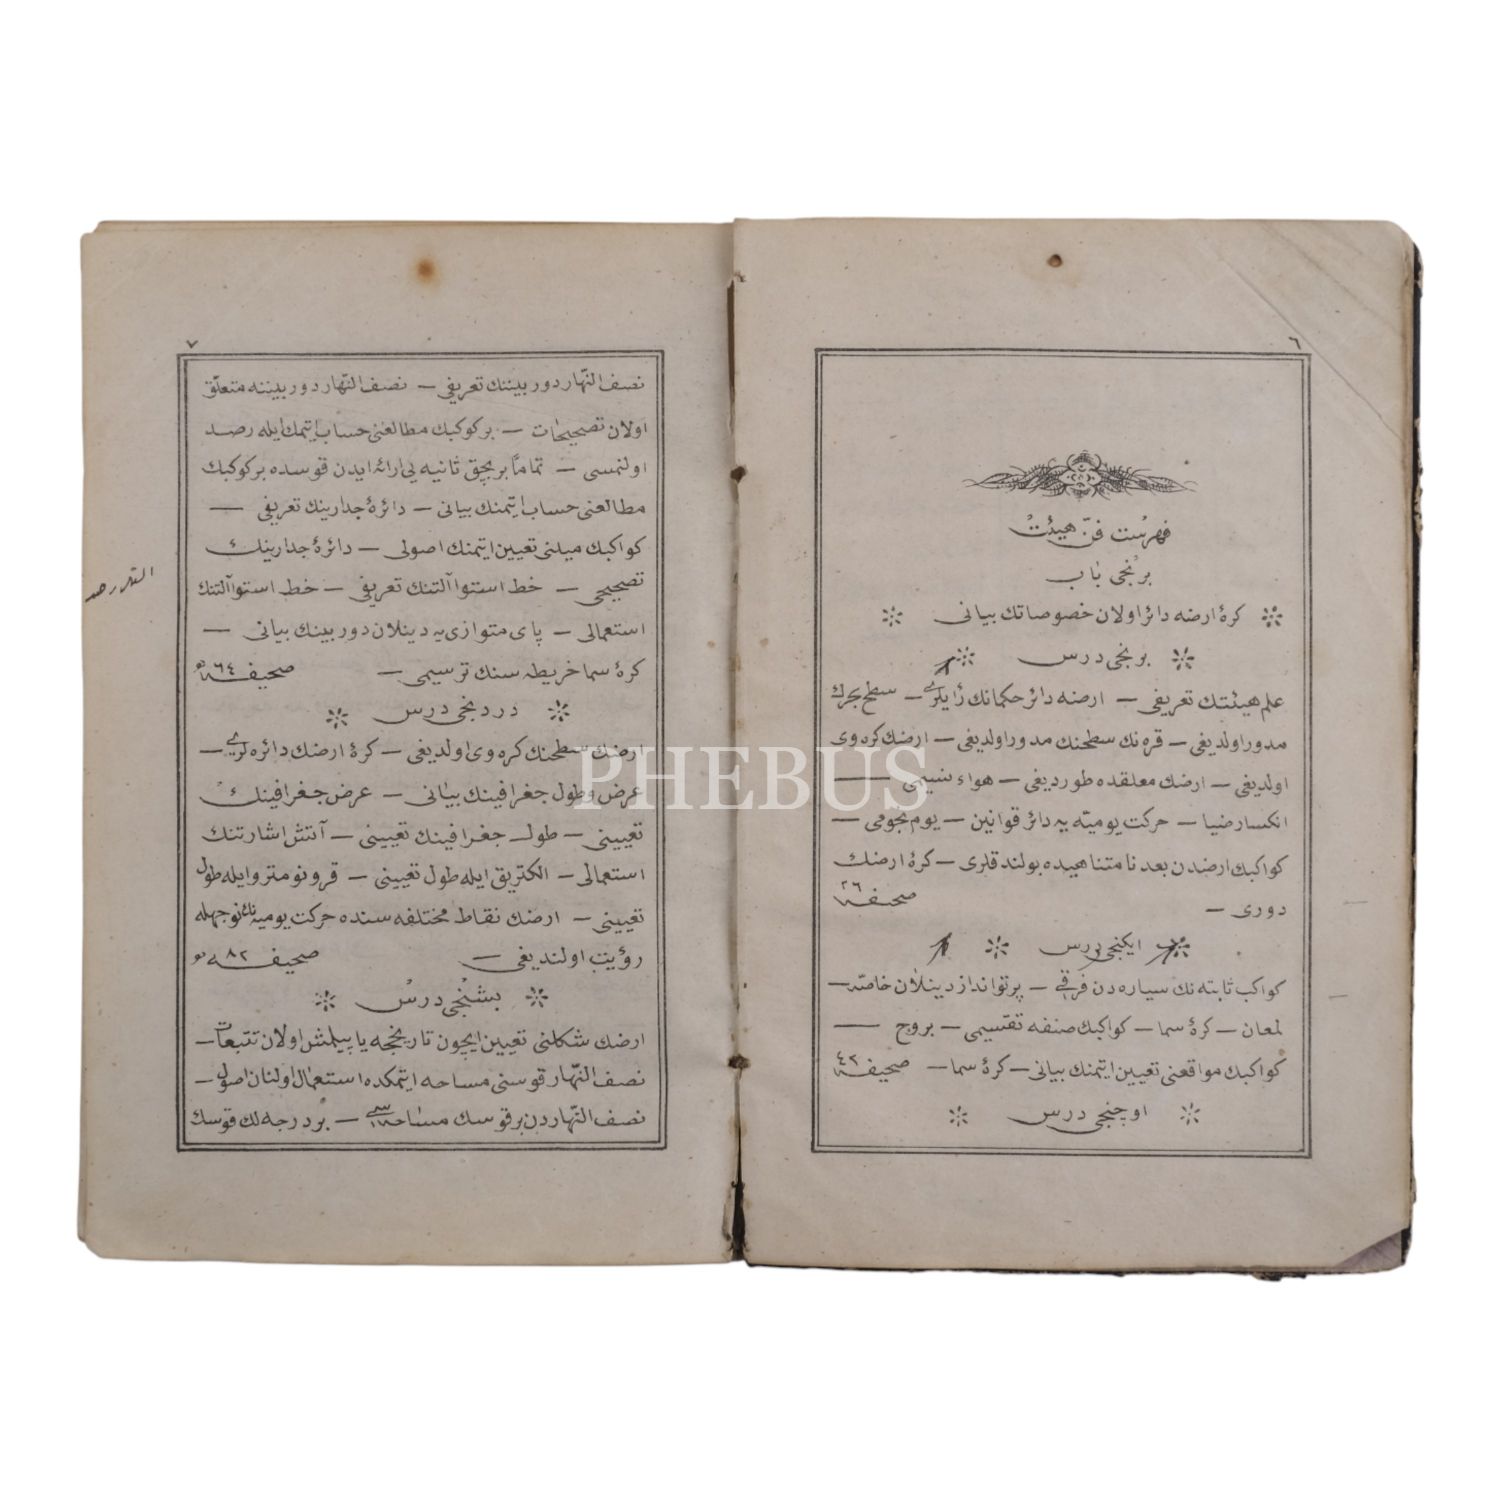 ٦
فهرست فنّ هيئت
برنجى باب
كرهٔ ارضه دائر اولان خصوصاتك بيانى
برنجى درس
علم هيئتك تعريفى — ارضه دائر حكمانك رأيلرى — سطح بحرك
مدور اولديغى — قره نك سطحنك مدور اولديغى — ارضك كره وى
اولديغى — ارضك معلقده طورديغى — هواء نسيمى —
انكسار ضيا — حركت يوميّه يه دائر قوانين — يوم نجومى —
كواكبك ارضدن بعد نامتناهيده بولندقلرى — كرهٔ ارضك
دورى — صحيفه ٢٦
ايكنجى درس
كواكب ثابته نك سياره دن فرقى — پرتو انداز دينلان خاصّه —
لمعان — كرهٔ سما — كواكبك صنفه تقسيمى — بروج —
كواكبك مواقعنى تعيين ايتمنك بيانى — كرهٔ سما — صحيفه ٤٢
اوچنجى درس
٧
نصف النّهار دوربيننك تعريفى — نصف النّهار دوربيننه متعلّق
اولان تصحيحات — بر كوكبك مطالعنى حساب ايتمك ايله رصد
اولنمسى — تماماً بر بچق ثانيه يى ارائه ايدن قوسده بر كوكبك
مطالعنى حساب ايتمنك بيانى — دائرهٔ جدارينك تعريفى —
كواكبك ميلنى تعيين ايتمنك اصولى — دائرهٔ جدارينك
تصحيحى — خط استوا آلتنك تعريفى — خط استوا آلتنك
استعمالى — پاى متوازى يه دينلان دوربينك بيانى —
كرهٔ سما خريطه سنك ترسيمى — صحيفه ٦٤
دردنجى درس
ارضك سطحنك كره وى اولديغى — كرهٔ ارضك دائره لرى —
عرض و طول جغرافينك بيانى — عرض جغرافينك
تعيينى — طول جغرافينك تعيينى — آتش اشارتنك
استعمالى — الكتريق ايله طول تعيينى — قرونومترو ايله طول
تعيينى — ارضك نقاط مختلفه سنده حركت يوميه نك نوجهله
رؤيت اولنديغى — صحيفه ٨٢
بشنجى درس
ارضك شكلنى تعيين ايچون تاريخجه ياپيلمش اولان تتبعات —
نصف النّهار قوسنى مساحه ايتمكده استعمال اولنان اصول —
نصف النّهاردن بر قوسك مساحه سى — بر درجه لك قوسك
PHEBUS